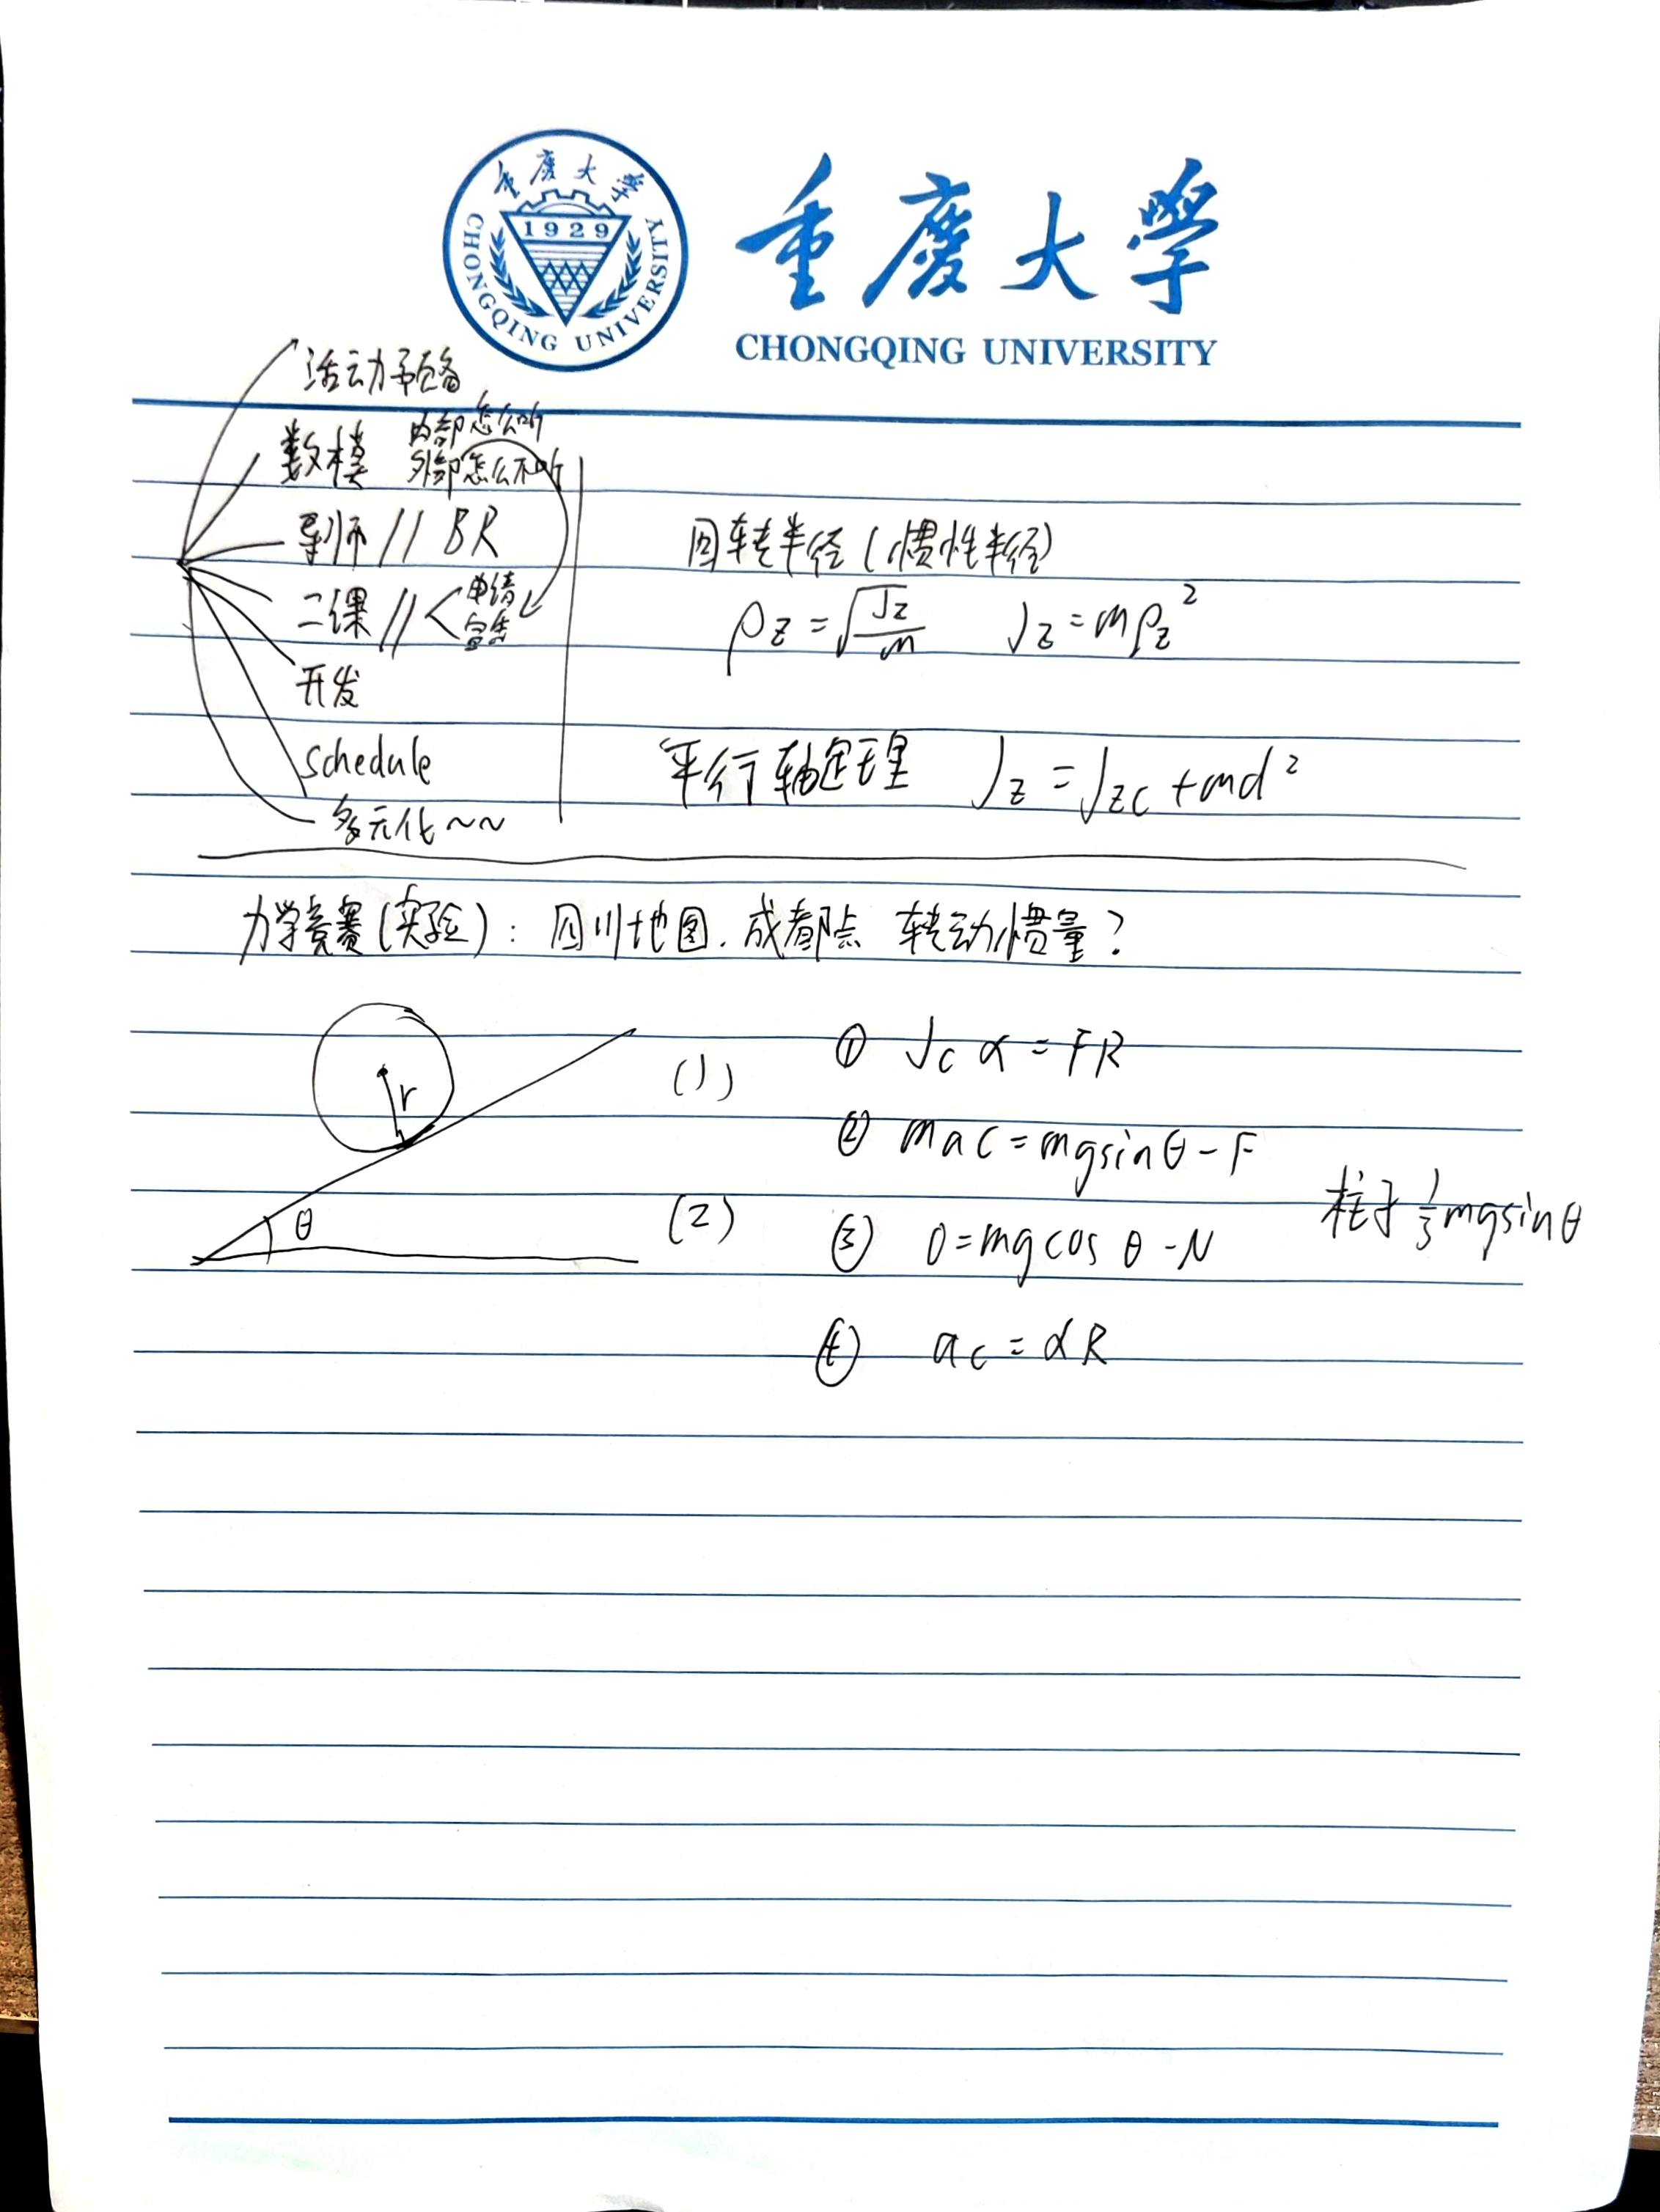 重庆大学
1929
CHONGQING UNIVERSITY
重慶大學
CHONGQING UNIVERSITY
活动预备
数模 内部怎么听
外部怎么不听
导师 // BR
二课 // < 申请
宣传
开发
schedule
多元化~~
回转半径(惯性半径)
ρz = √(Jz/m) Jz = mρz²
平行轴定理 Jz = Jzc + md²
力学竞赛(实验): 四川地图. 成都点 转动惯量?
r
θ
(1)
(2)
① Jc α = FR
② mac = mgsinθ - F
③ 0 = mg cos θ - N
④ ac = αR
柱子 1/3 mgsinθ